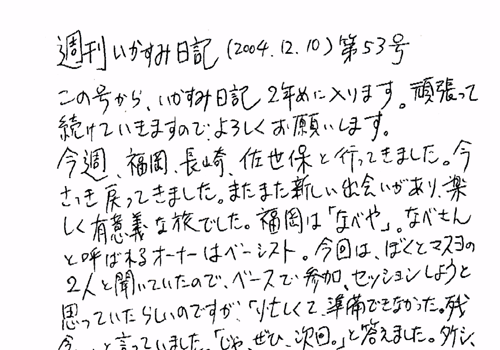 週刊いかすみ日記 (2004.12.10) 第53号
この号から、いかすみ日記2年めに入ります。頑張って
続けていきますので、よろしくお願いします。
今週、福岡、長崎、佐世保と行ってきました。今
さっき戻ってきました。またまた新しい出会いがあり、楽
しく有意義な旅でした。福岡は「なべや」。なべさん
と呼ばれるオーナーはベーシスト。今回は、ぼくとマスヨの
2人と聞いていたので、ベースで参加、セッションしようと
思っていたらしいのですが、「忙しくて、準備できなかった。残
念。」と言っていました。「じゃ、ぜひ、次回。」と答えました。